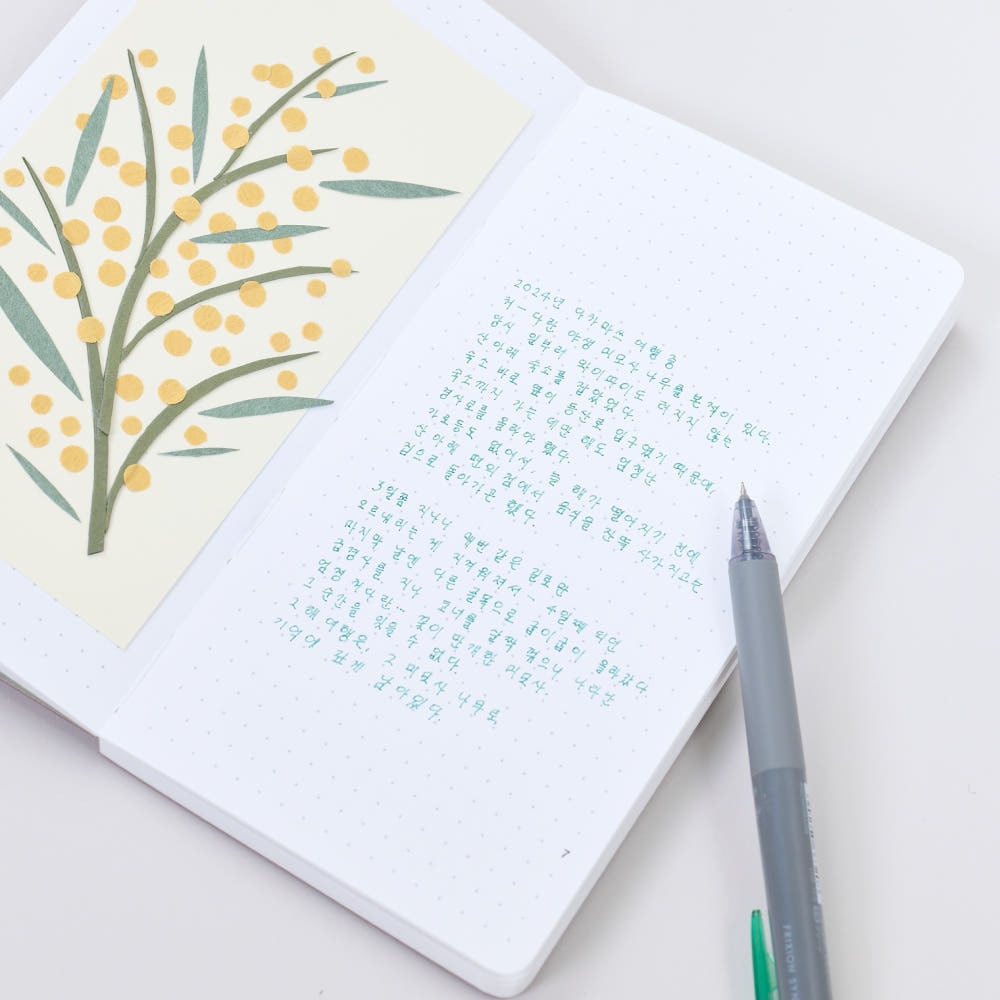 2024년 다카마쓰 여행 중
커-다란 야생 미모사 나무를 본 적이 있다.
당시 일부러 와이파이도 터지지 않는
산 아래 숙소를 잡았었다.
숙소 바로 옆이 등산로 입구였기 때문에,
숙소까지 가는 데만 해도 엄청난
경사로를 올라야 했다.
가로등도 없어서, 늘 해가 떨어지기 전에
산 아래 편의점에서 음식을 잔뜩 사가지고는
집으로 돌아가곤 했다.
3일쯤 지나니 매번 같은 길로만
오르내리는 게 지겨워져서- 4일째 되던
마지막 날엔 다른 골목으로 굽이굽이 올라갔다.
급경사를 지나 코너를 살짝 꺾으니 나타난
엄청 커다란... 꽃이 만개한 미모사.
그 순간을 잊을 수 없다.
그 해 여행은, 그 미모사 나무로
기억에 남아있다.
7
FRIXION SYN